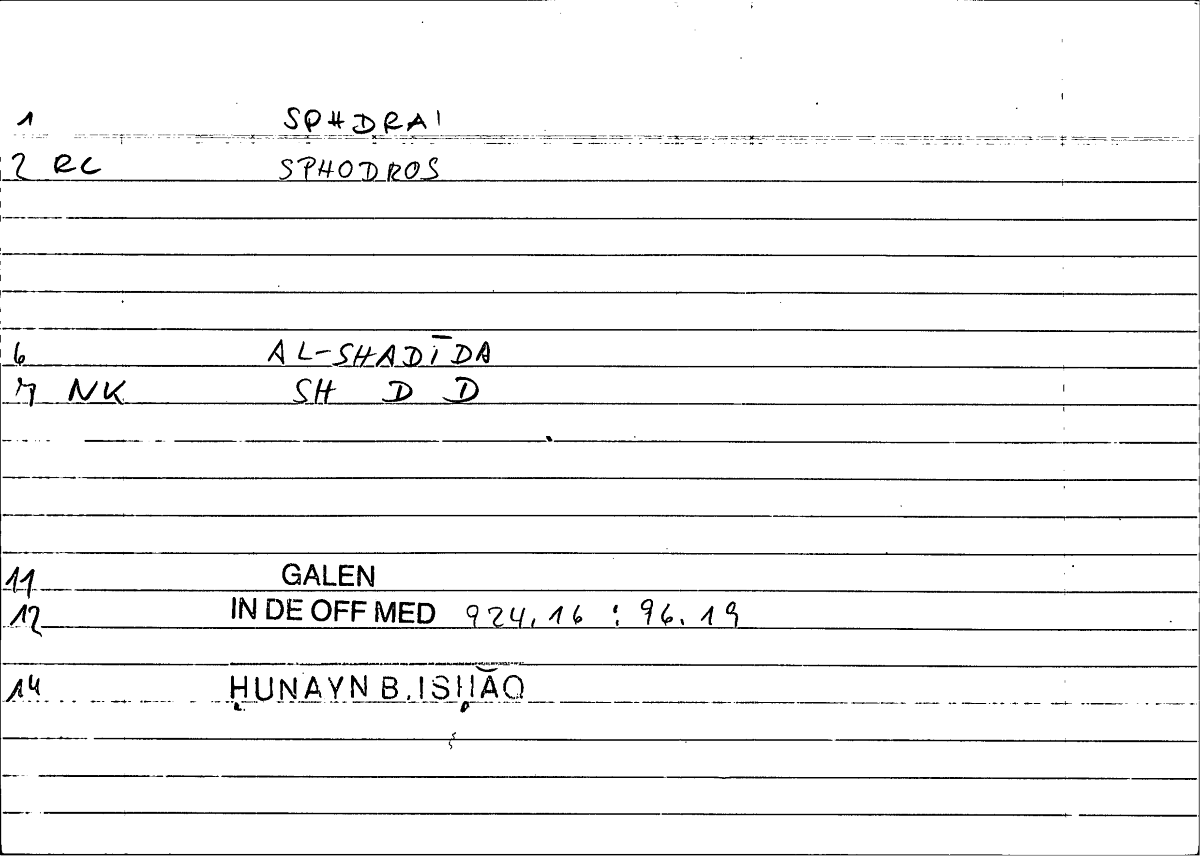 1 SPHDRAI
2 RC SPHODROS
6 AL-SHADĪDA
7 NK SH D D
11 GALEN
12 IN DE OFF MED 924,16 : 96.19
14 ḤUNAYN B. ISḤĀQ